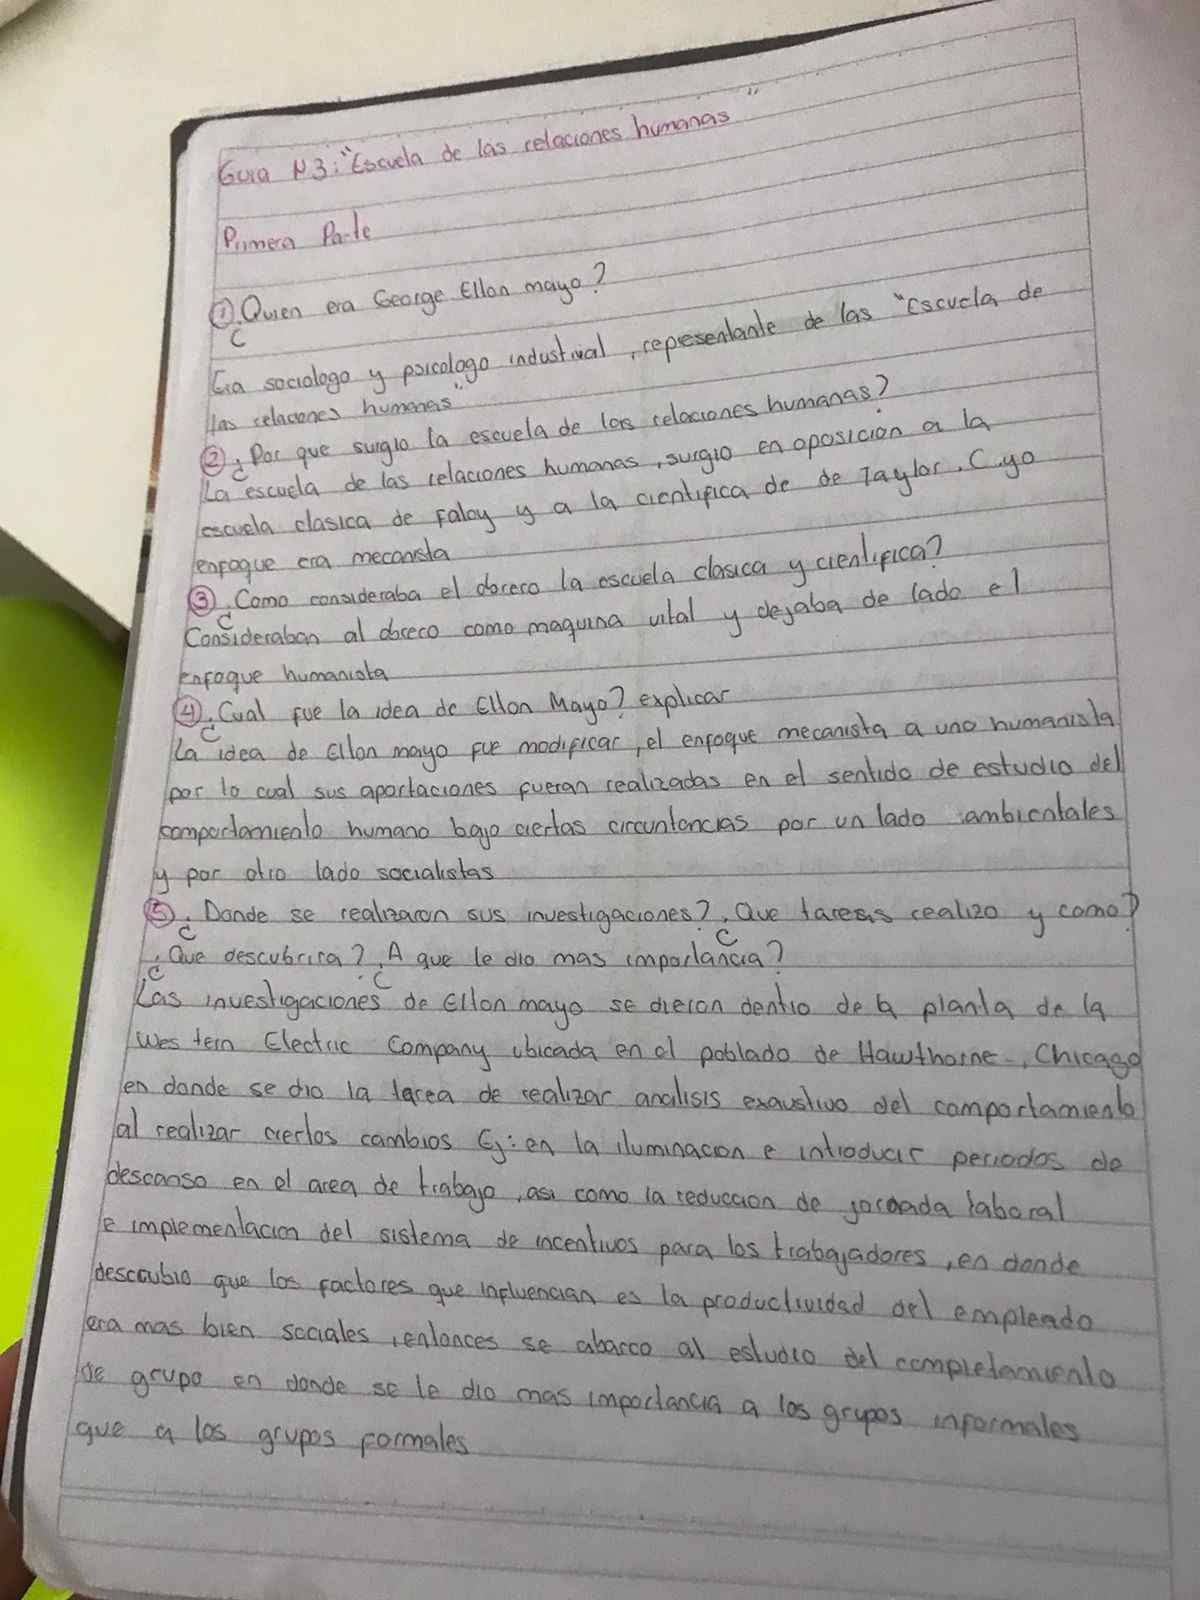 Guia N3: "Escuela de las relaciones humanas"
Primera Parte
① ¿Quien era George Elton mayo?
Era sociologo y psicologo industrial, representante de las "Escuela de
las relaciones humanas"
② ¿Por que surgio la escuela de las relaciones humanas?
La escuela de las relaciones humanas, surgio en oposicion a la
escuela clasica de Faloy y a la cientifica de de Taylor. Cuyo
enfoque era mecanista
③ ¿Como consideraba el obrero la escuela clasica y cientifica?
Consideraban al obrero como maquina vital y dejaba de lado el
enfoque humanista
④ ¿Cual fue la idea de Elton Mayo? explicar
La idea de Elton mayo fue modificar, el enfoque mecanista a uno humanista
por lo cual sus aportaciones fueran realizadas en el sentido de estudio del
comportamiento humano bajo ciertas circuntancias por un lado ambientales
y por otro lado socialistas
⑤ ¿Donde se realizaron sus investigaciones? ¿Que tareas realizo y como?
¿Que descubrira? ¿A que le dio mas importancia?
Las investigaciones de Elton mayo se dieron dentro de la planta de la
Western Electric Company ubicada en el poblado de Hawthorne, Chicago
en donde se dio la tarea de realizar analisis exaustivo del comportamiento
al realizar ciertos cambios Ej: en la iluminacion e introducir periodos de
descanso en el area de trabajo, asi como la reduccion de jornada laboral
e implementacion del sistema de incentivos para los trabajadores, en donde
descrubio que los factores que influencian es la productividad del empleado
era mas bien sociales, entonces se abarco al estudio del completamiento
de grupo en donde se le dio mas importancia a los grupos informales
que a los grupos formales